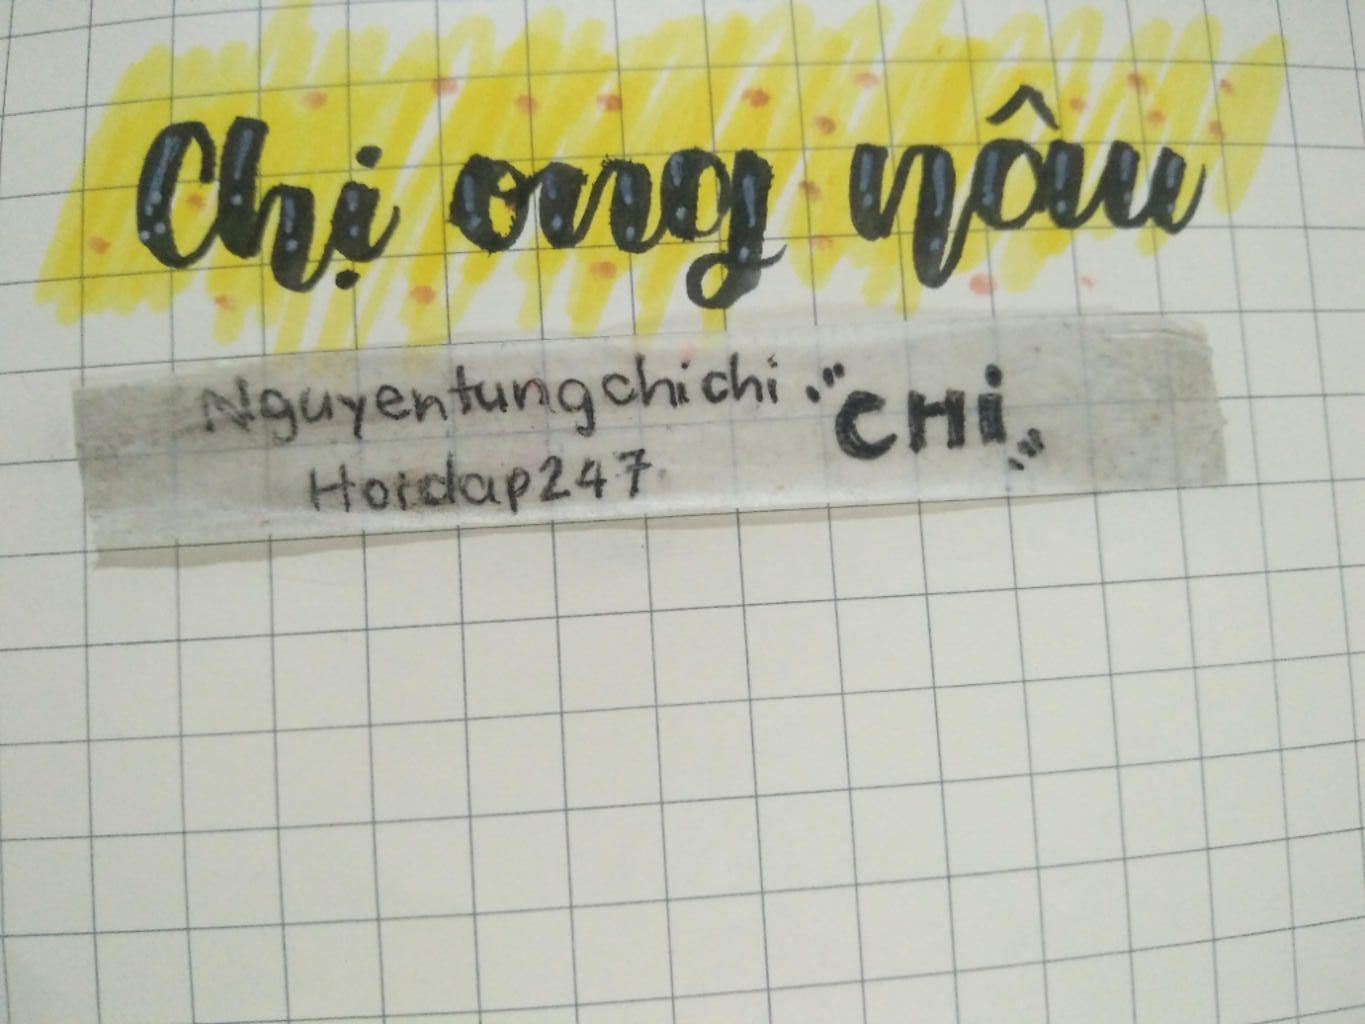 Chị ong nâu
Nguyentungchichi "CHI"
Hoidap247